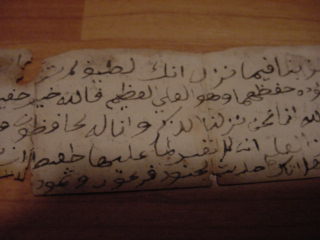 بنا فيما نزل انك لطيف لم
حفظهما وهو العلي العظيم فالله خير
انا نحن نزلنا الذكر وانا له لحافظون
ان كل نفس لما عليها حافظ
هل اتاك حديث الجنود فرعون وثمود